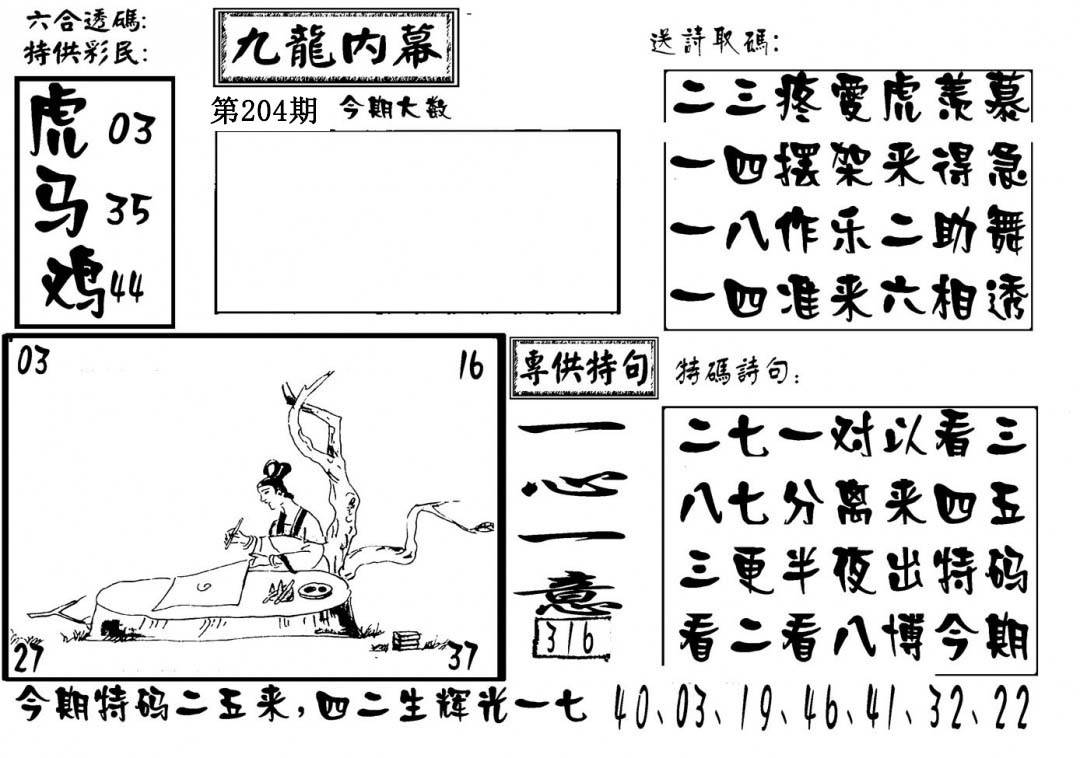 六合透碼:
特供彩民:
虎 03
马 35
鸡 44
九龍内幕
第204期 今期大数
送詩取碼:
二三疼愛虎羨慕
一四摆架来得急
一八作乐二助舞
一四准来六相透
03
16
27
37
專供特句
一心一意
316
特碼詩句:
二七一对以看三
八七分离来四五
三更半夜出特码
看二看八博今期
今期特码二五来,四二生辉光一七 40、03、19、46、41、32、22